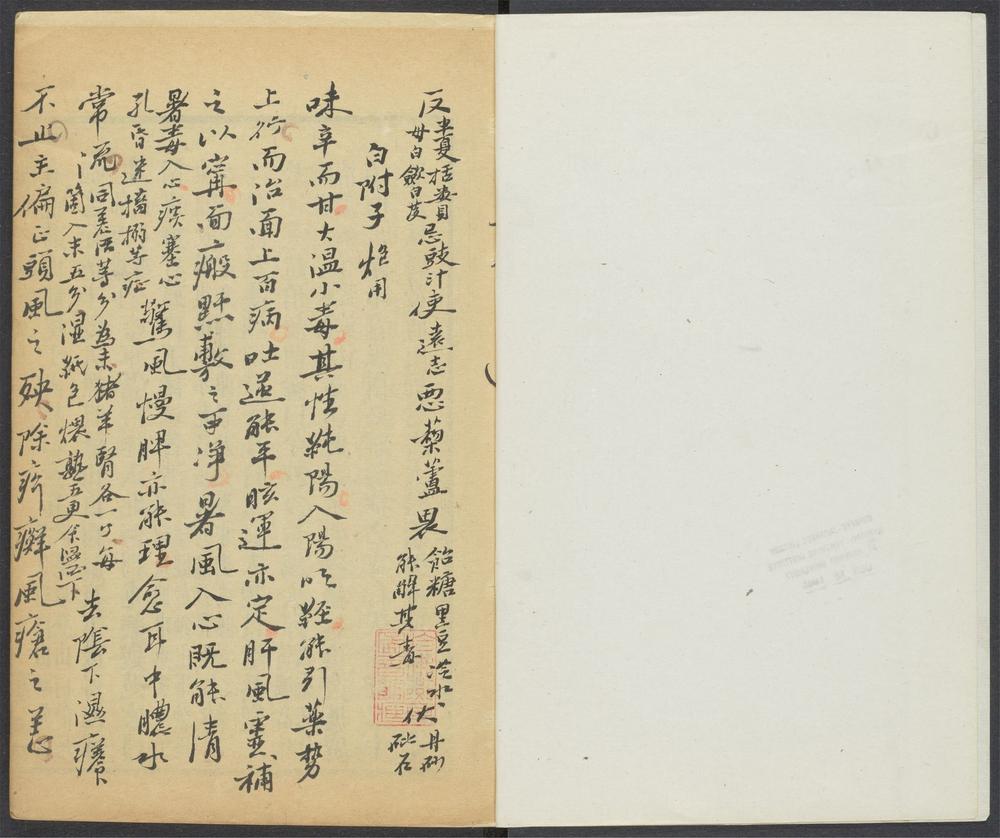 反半夏栝蔞貝母白斂白芨忌豉汁使遠志惡藜蘆畏飴糖黑豆冷水能解其毒伏丹砂砒石
白附子炮用
味辛而甘大溫小毒其性純陽入陽明經能引藥勢
上行而治面上百病吐逆能平眩運亦定肝風虛補
之以寧面瘢䵟敷之可淨暑風入心既能清
暑毒入心痰塞心孔昏迷搐搦等症驚風慢脾亦能理愈耳中膿水
常流同羌活等分為末猪羊腎各一个每个箇入末五分濕紙包煨熟五更食溫下去陰下濕癢
不止主偏正頭風之殃除疥癬風瘡之恙